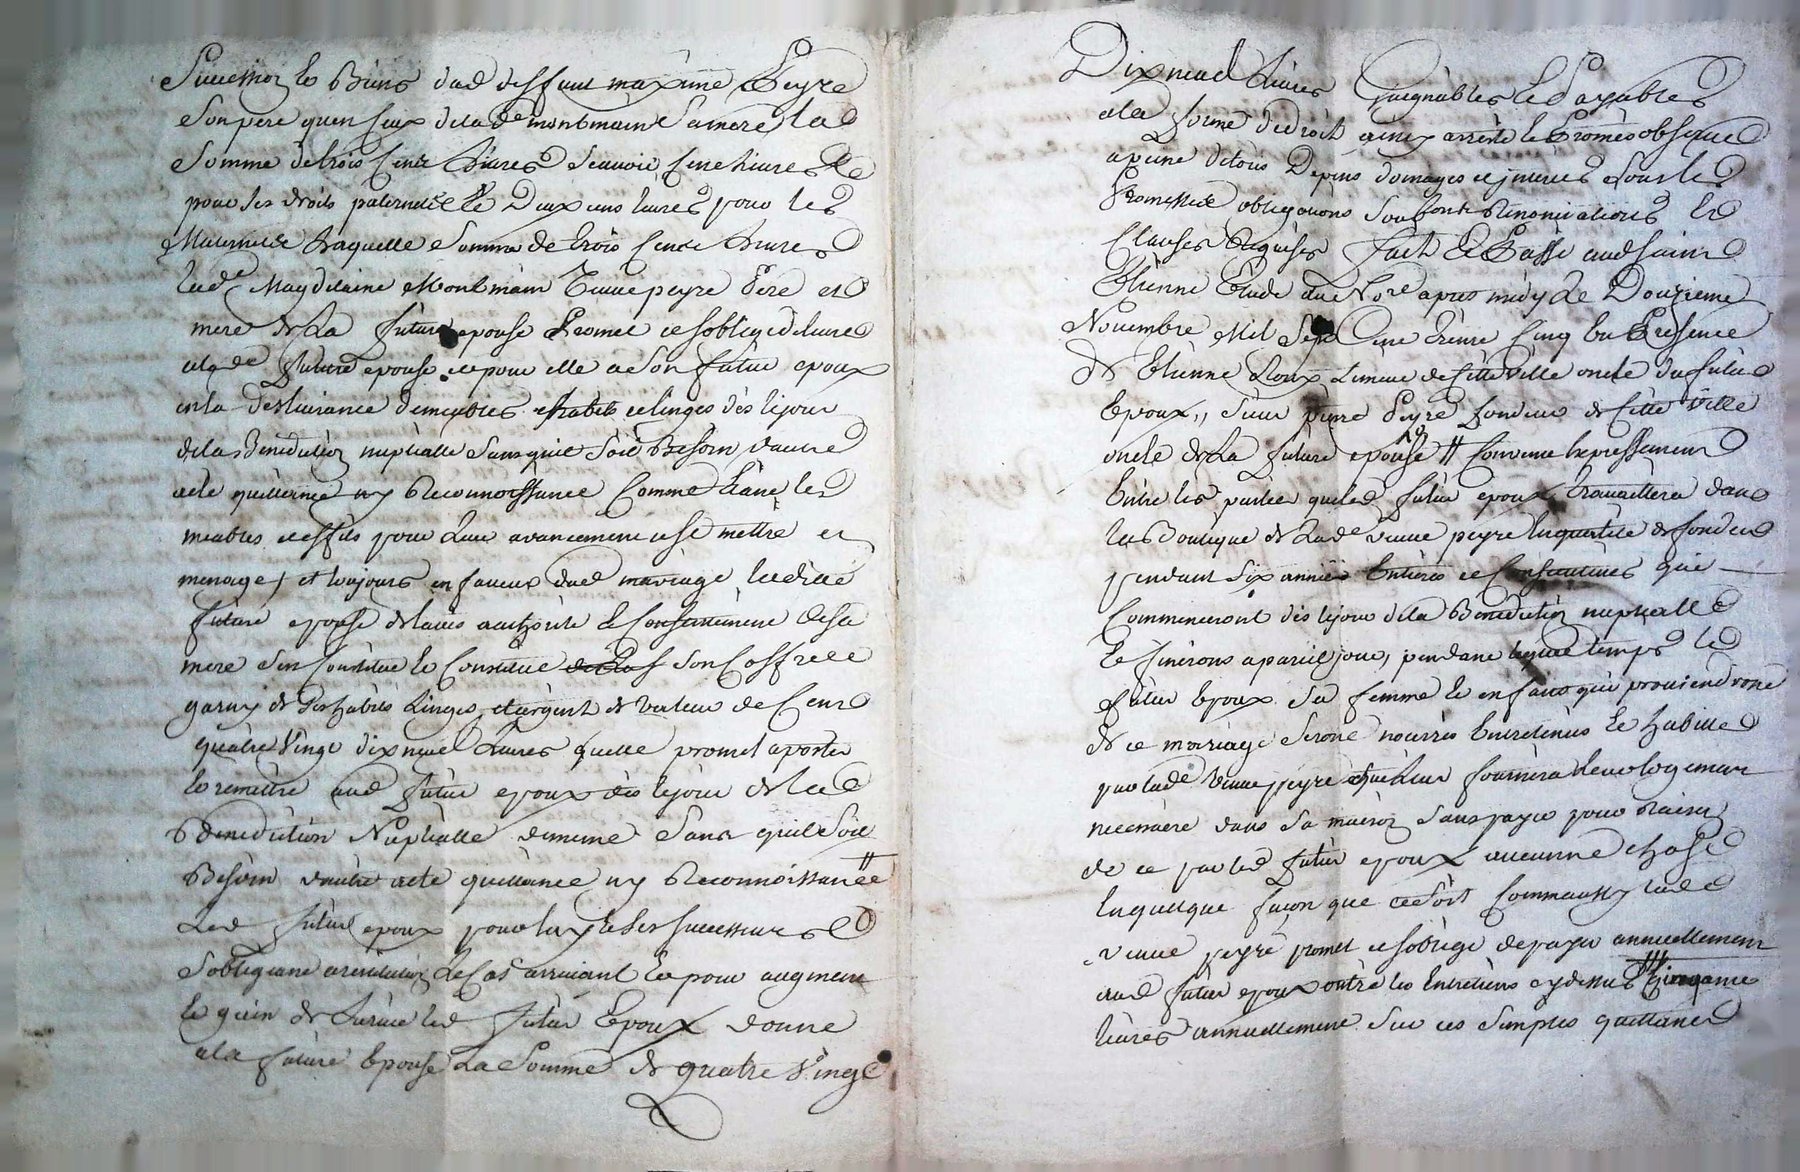 Succession les Biens dud deffunt maxime Peyre
son pere quen Ceux de lade montmain sa mere la
somme de trois Cents Livres scavoir Cent livres
pour ses droits paternels et Deux cens livres pour les
Maternels Laquelle somme de trois Cents Livres
lade Magdelaine Montmain veuve peyre Pere et
mere de La future epouse Promet et soblige delivrer
alade future epouse et pour elle a son futur epoux
en la deslivrance de meubles habits et linges dès le jour
de la Benediction nuptialle sans quil soit Besoin dautre
acte quittance ny Reconnoissance Comme étant les
meubles et effets pour Leur avancement et se mettre en
menage, et toujours en faveur dud mariage ladite
future epouse de lavis authorité & Consentement de sa
mere sen Constitue le Constitue son Coffre
garny de ses habits Linges et argent de valeur de Cent
quatre Vingt dix neuf Livres quelle promet aporter
& remettre aud futur epoux dès le jour de lad
Benediction Nuptialle de meme sans quil soit
Besoin dautre acte quittance ny Reconnoissance
Led futur epoux pour luy & ses successeurs
sobligeant a restitution Le Cas arrivant & pour augment
& gain de survie led futur Epoux donne
ala future Epouse La somme de quatre Vingt
Dix neuf Livres Gaignables & Payables
ala forme du droit ainsy arreté & Promès observer
a peine de tous Depens domages et jnterets sous les
Promesses obligations soubmis Renonciations &
Clauses Requises Fait & Passé aud Saint
Etienne Etude du Nore apres midy Le Douzieme
Novembre Mil Sept Cent trente Cinq en Presence
de Etienne Roux Limeur de Cette Ville oncle du futur
Epoux, sieur pierre Peyre fondeur de Cette Ville
oncle de La future epouse Convenu Expressement
Entre les parties que led futur epoux travaillera dans
la Boutique de Lade veuve peyre En qualité de fondeur
pendant six années Entieres et Consecutives qui
Commenceront dès le jour de la Benediction nuptialle
& finirons a pareil jour, pendant lequel temps le
futur Epoux Sa femme & enfants qui proviendront
de ce mariage seront nourris Entretenus & habillés
par lade veuve peyre que Leur fournira leur logement
necessaire dans sa maison sans payer pour Raison
de ce par led futur epoux aucunne chose
En quelque facon que ce soit Comme aussy lade
veuve peyre promet et soblige de payer annuellement
aud futur epoux outre les Entretiens cydessus Cinquante
livres annuellement sur ses simples quittances